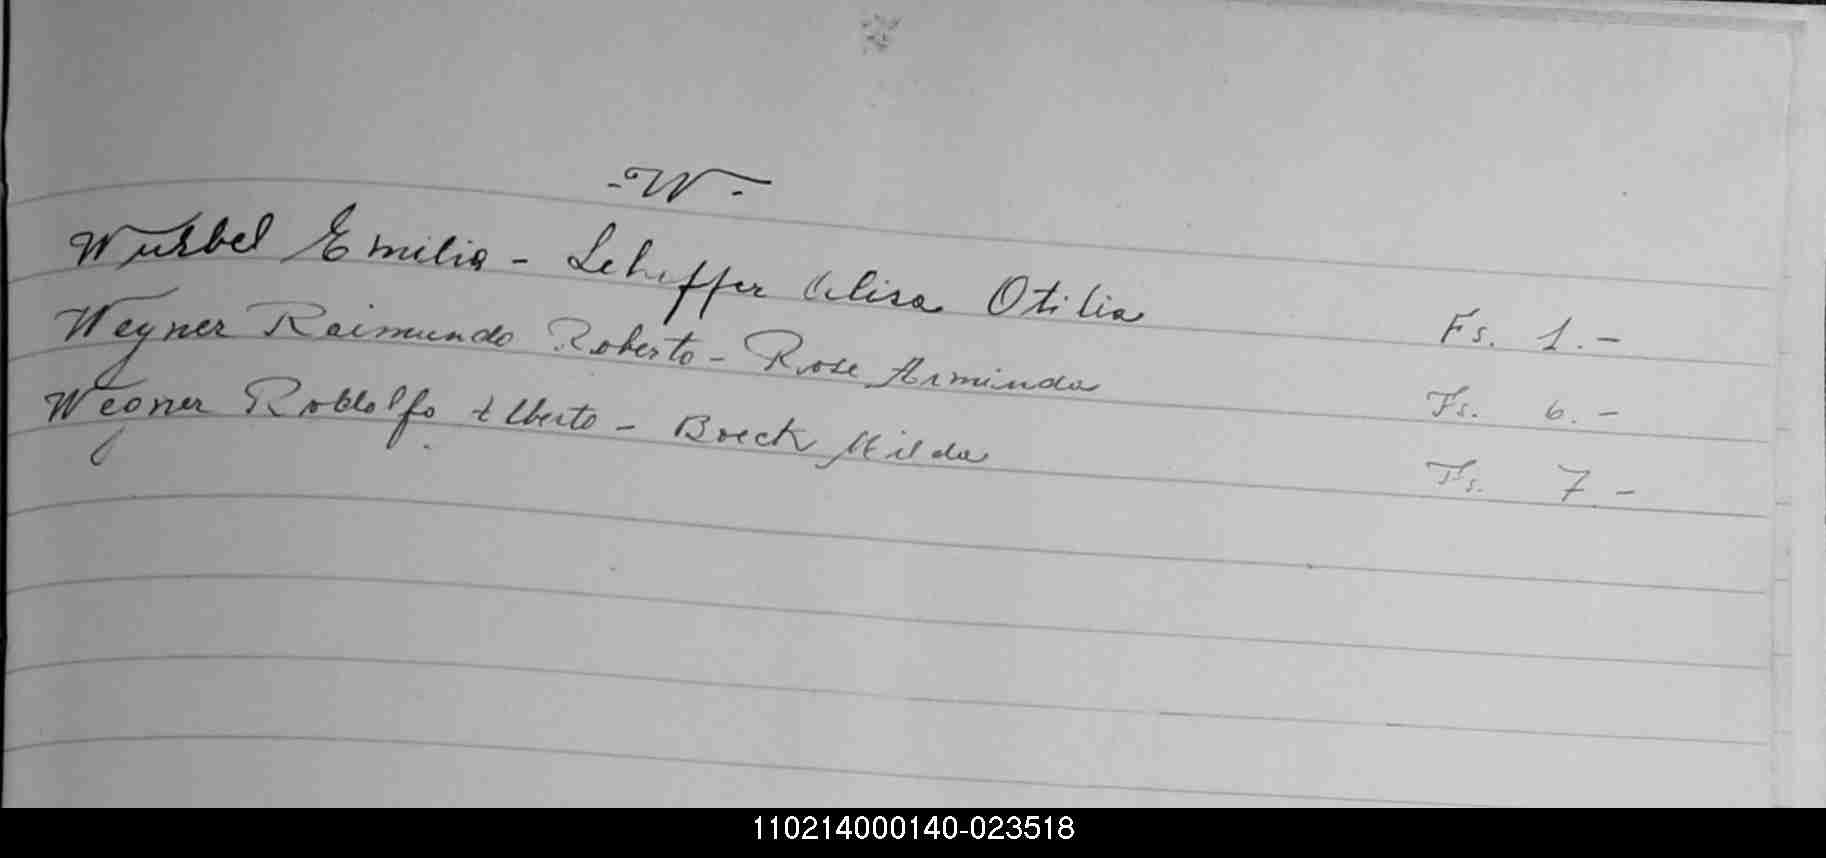 -W-
Wurbel Emilia - Scheffer Elisa Otilia Fs. 1.-
Wegner Raimundo Roberto - Rose Arminda Fs. 6.-
Wegner Rodolfo Alberto - Boeck Hilda Fs. 7-
110214000140-023518